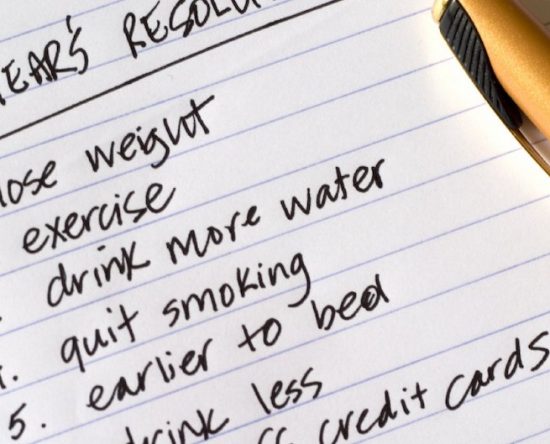 YEAR'S RESOLU
lose weight
exercise
drink more water
quit smoking
5. earlier to bed
drink less
credit cards